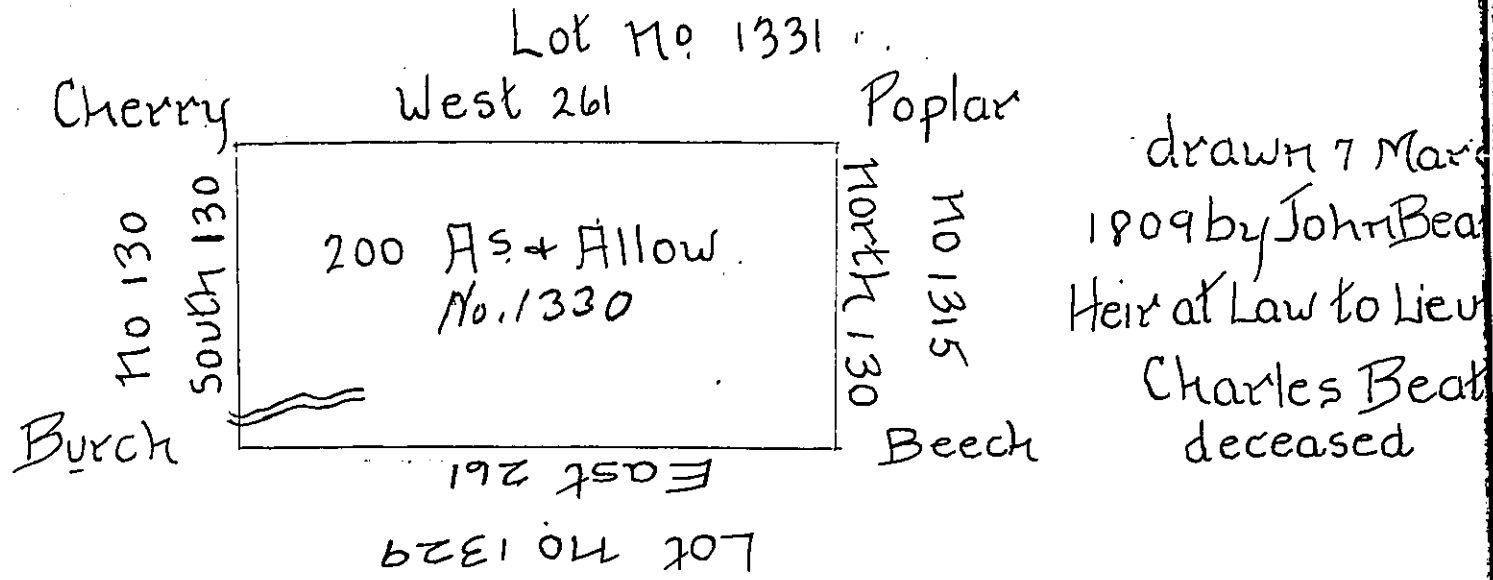 Lot No. 1331
Cherry West 261 Poplar
No 130
South 130
200 As. & Allow.
No. 1330
North 130
No 1315
Burch
Beech
East 261
Lot No 1329
drawn 7
1809 by John
Heir at Law to
Charles
deceased